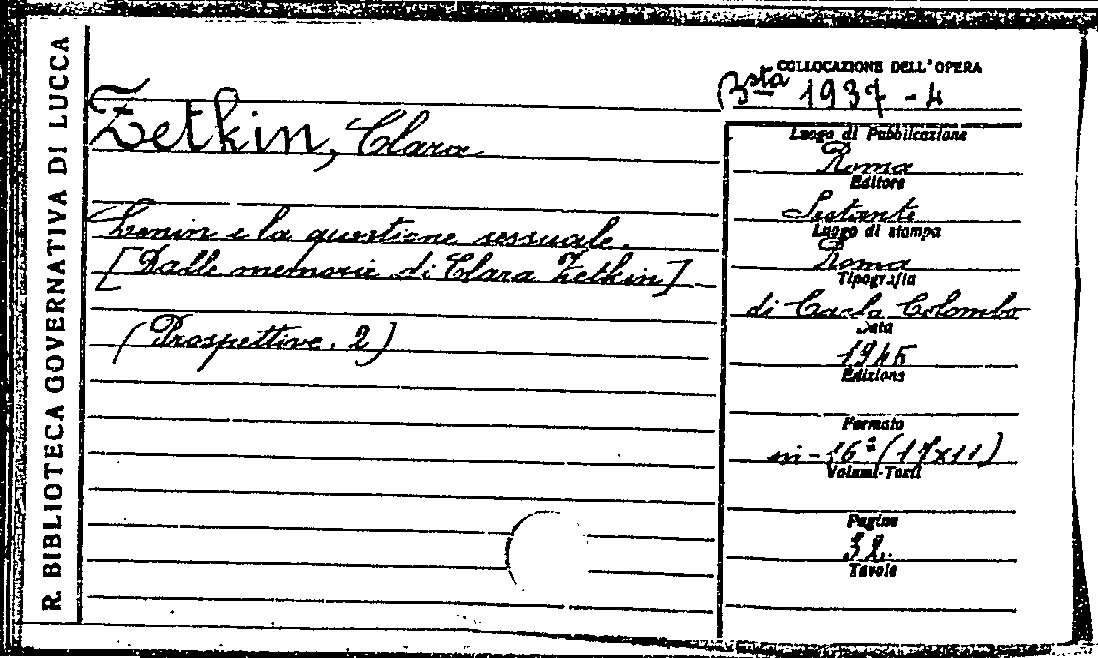 R. BIBLIOTECA GOVERNATIVA DI LUCCA
COLLOCAZIONE DELL'OPERA
Bsta 1937 - 4
Zetkin, Clara
Lenin e la questione sessuale.
[Dalle memorie di Clara Zetkin]
(Prospettive. 2)
Luogo di Pubblicazione
Roma
Editore
Sestante
Luogo di stampa
Roma
Tipografia
di Carlo Colombo
Data
1945
Edizione
Formato
in-16° (17x11)
Volumi-Tomi
Pagine
32.
Tavole